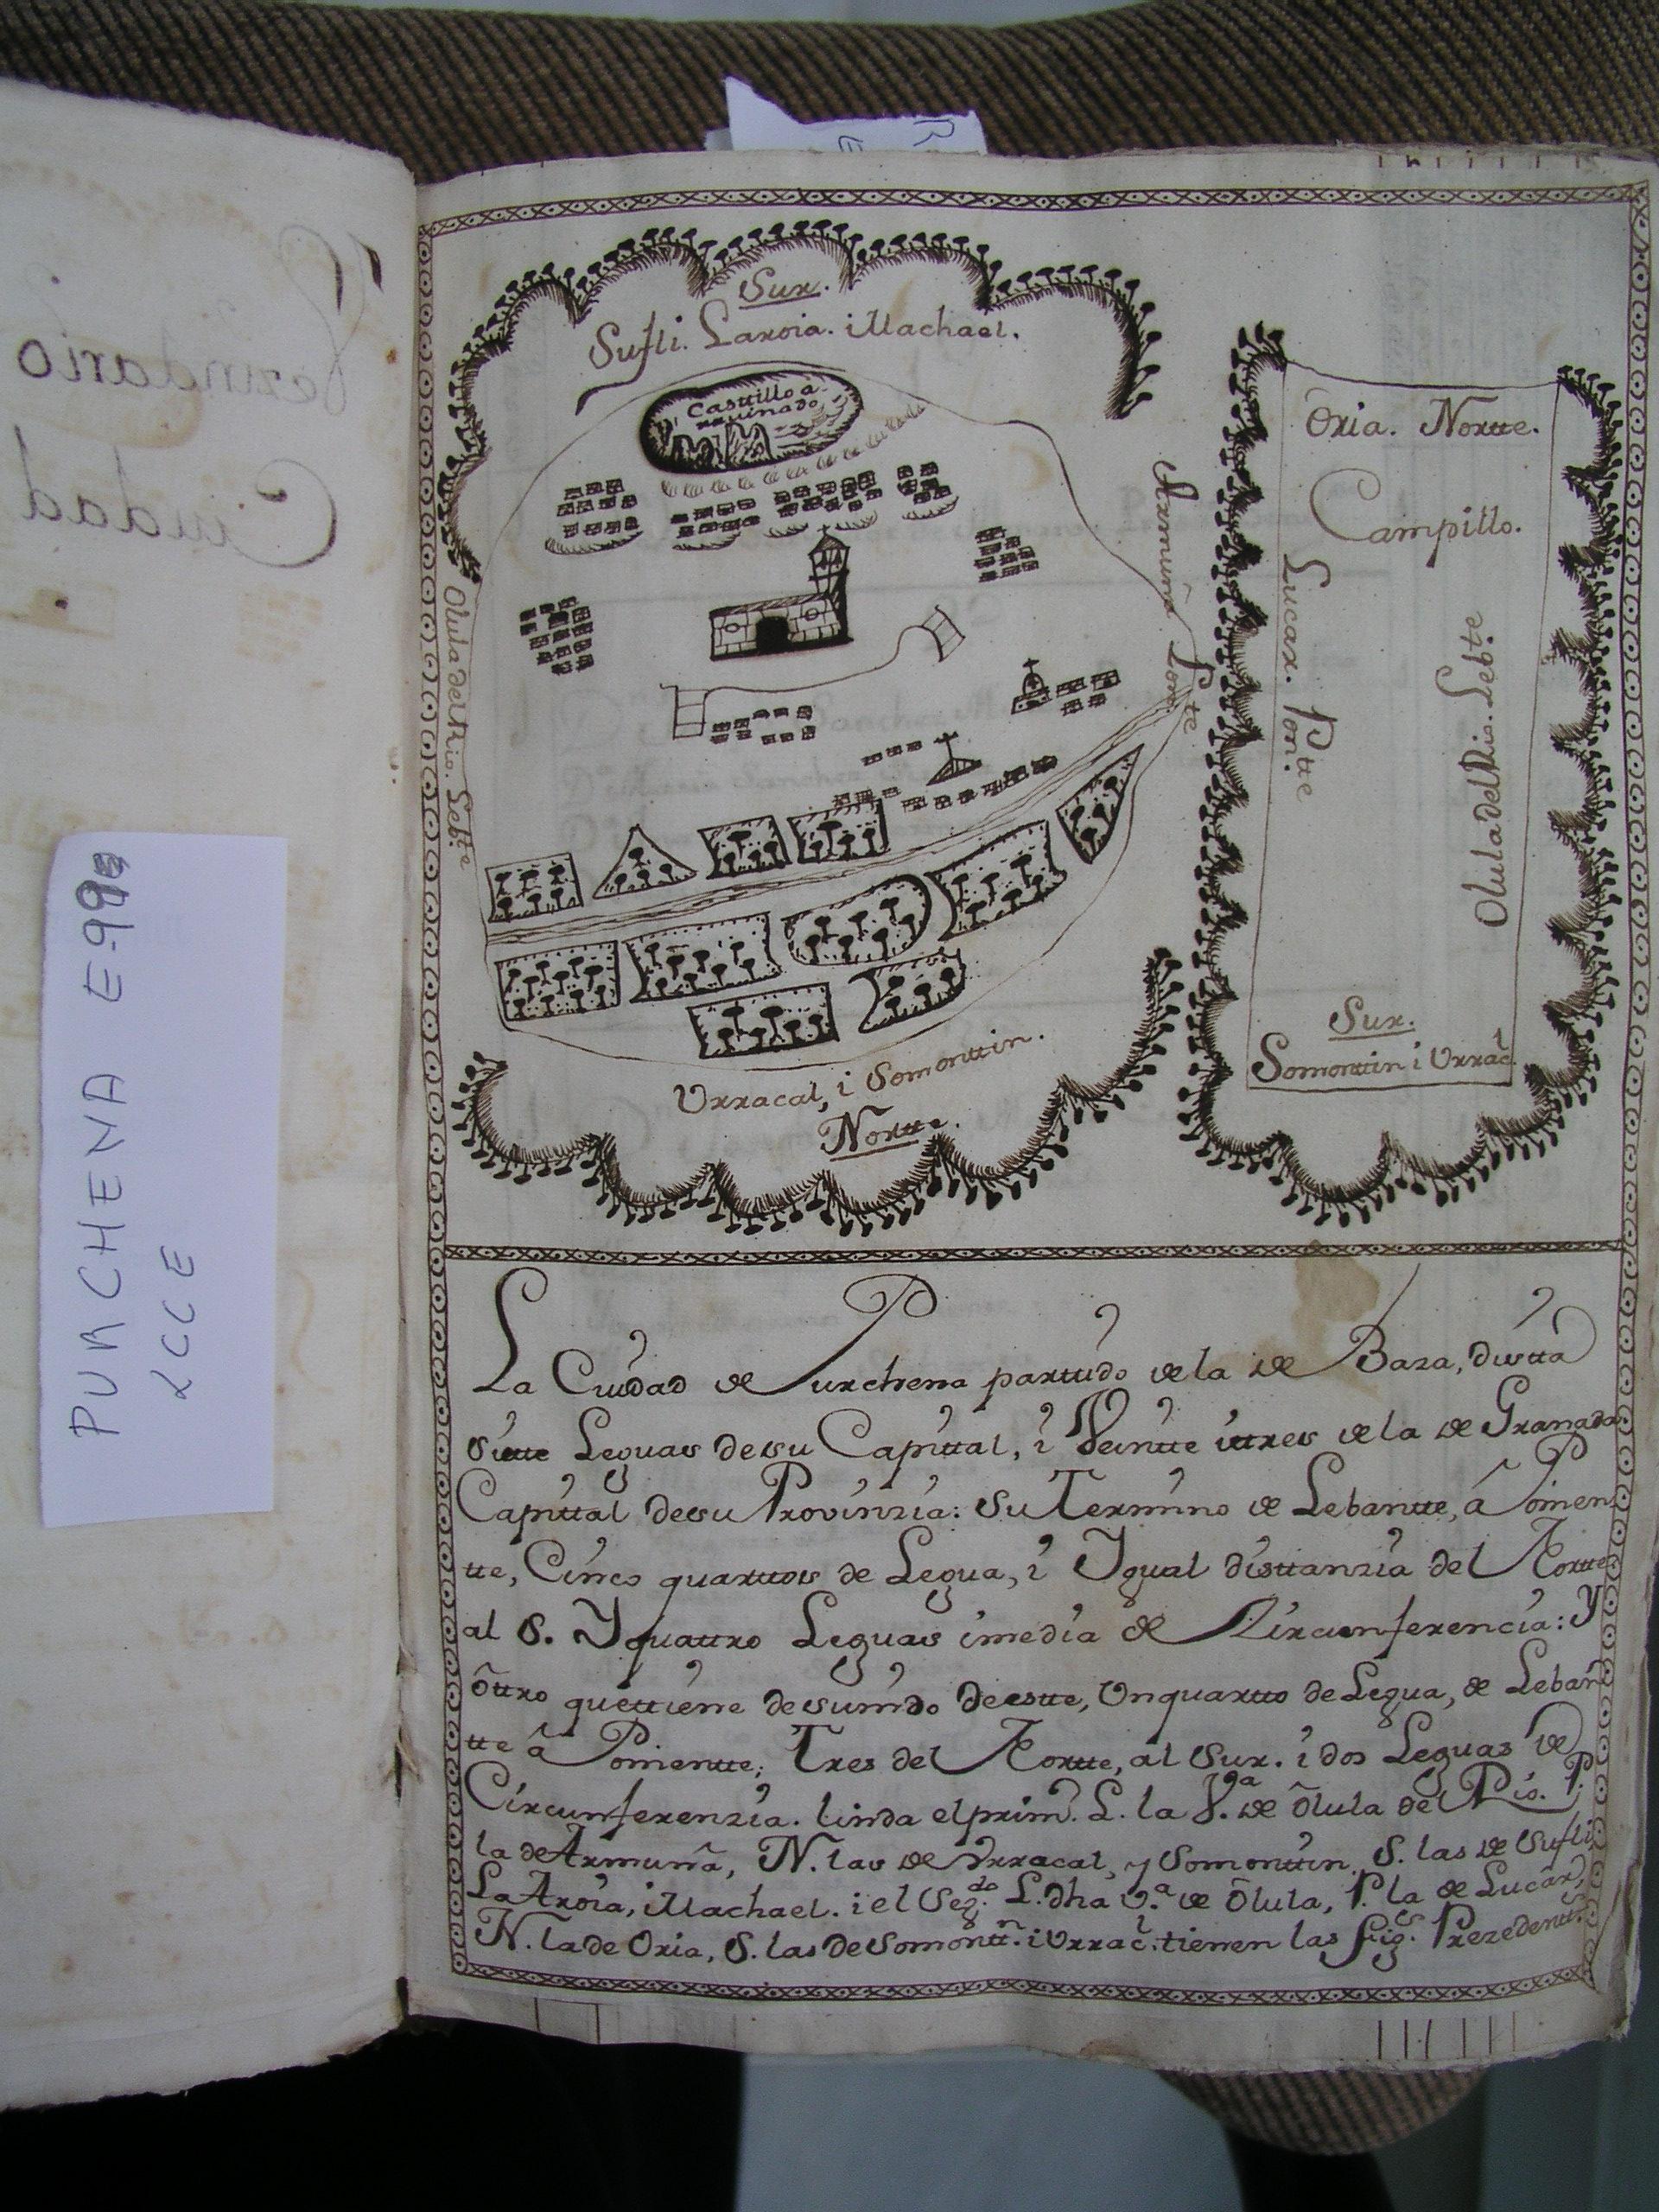 Sur.
Sufli. Laroia. i Machael.
Casttillo a
rruinado
Olula del Rio. Leb.te
Armuña Pon.te
Urracal, i Somonttin.
Nortte.
Oria. Nortte.
Campillo.
Lucar. Pon.tte
Olula del Rio. Leb.te
Sur.
Somonttin i Urrac.l
La Ciudad de Purchena parttido de la de Baza, distta
siette Leguas de su Capittal, i Veintte ittres de la de Granada
Capittal de su Provinzia: Su Termino de Lebantte, á Ponien
tte, Cinco quarttos de Legua, i Ygual disttanzia del Nortte
al S. Y quattro Leguas i media de Zircunferencia: Y
ôttro que ttiene desunido de estte, Un quartto de Legua, de Leban
tte â Ponientte; Tres del Nortte, al Sur. i dos Leguas de
Circunferenzia. linda el prim.o L. la V.ª de ôlula del Rio. P.
la de Armuña, N. las de Urracal, y Somonttin, S. las de Sufli
La Aroia, i Machael. i el Seg.do L. dha V.ª de ôlula, P. la de Lucar,
N. la de Oria, S. las de Somontt.n i Urrac.l: tienen las fig.s Prezedentt.s
Vezindario
Ciudad
PURCHENA E-99
LCCE